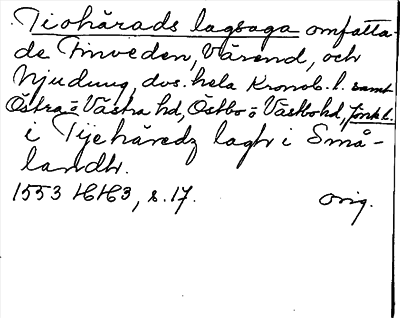 Tiohärads lagsaga omfatta-
de Finveden, Värend, och
Njudung, dvs. hela Kronob. l. samt
Östra o Västra hd, Östbo o Västbo hd, Jönk l.
i Tijehäredz lagh i Små-
landh.
1553 HH3, s. 17. orig.